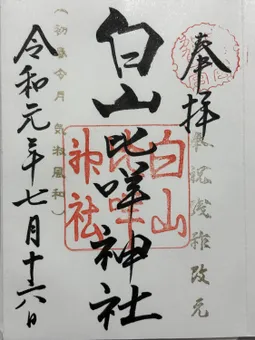 奉拝
奉祝践祚改元
白山比咩神社
白山比咩神社
(初春令月 気淑風和)
令和元年七月十六日